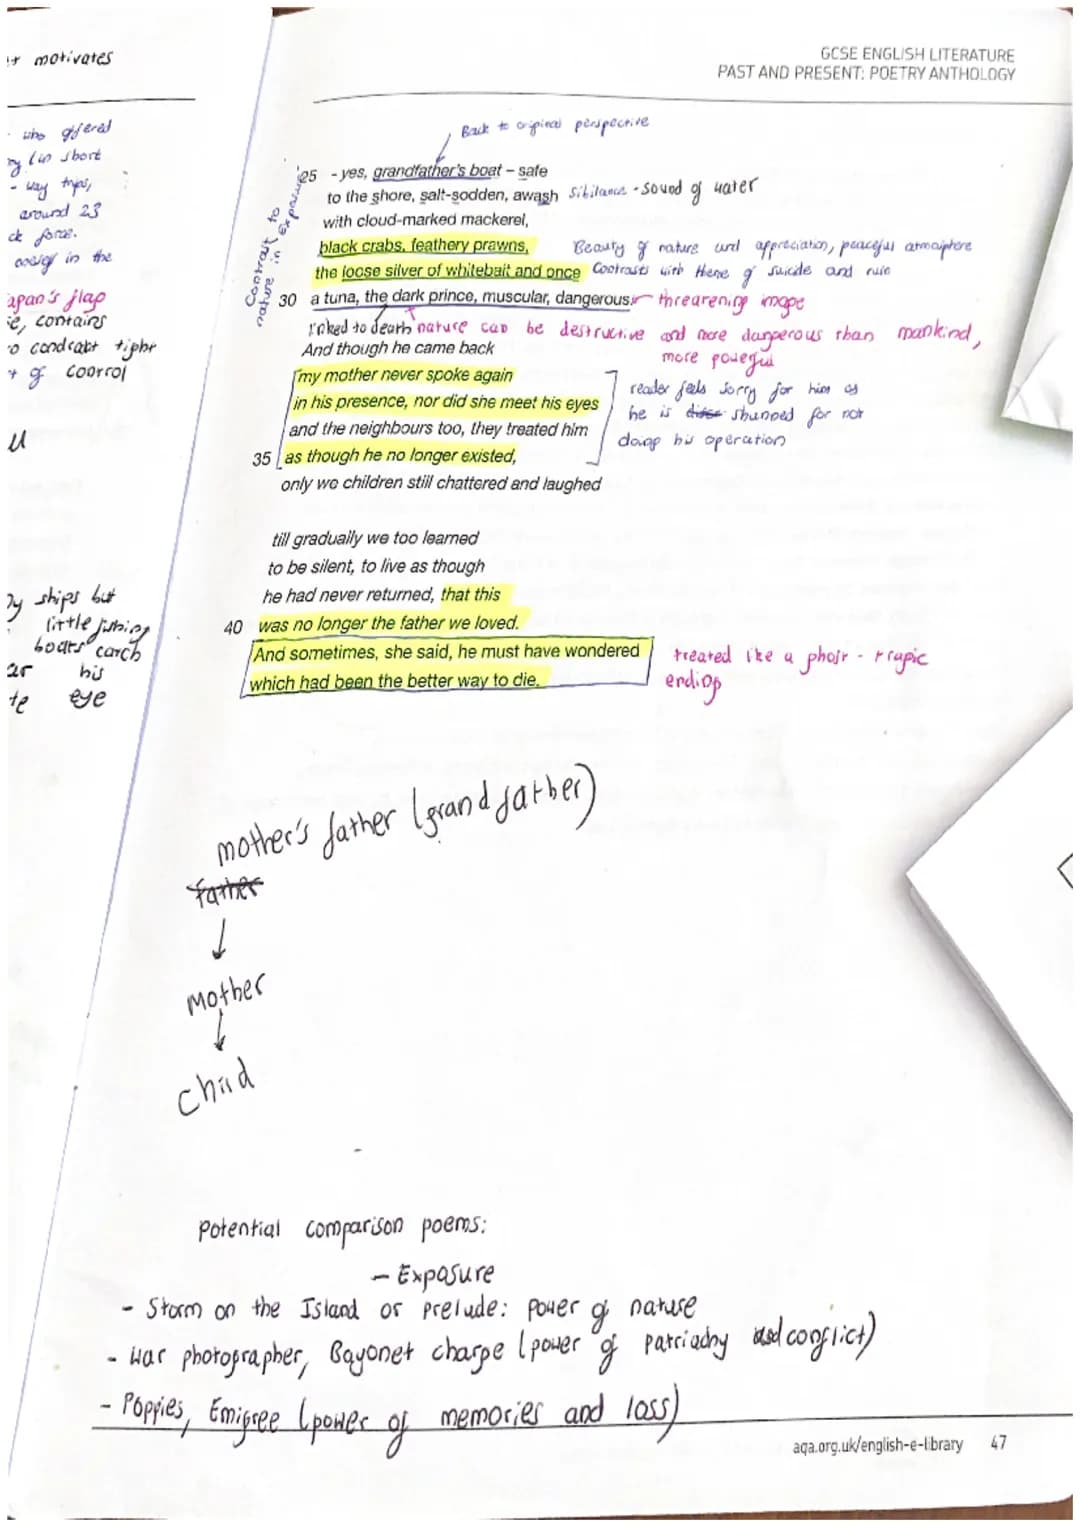 motivates
GCSE ENGLISH LITERATURE
PAST AND PRESENT: POETRY ANTHOLOGY
who offered
(in short
- way trips,
around 23
force.
in the
apan's flap
contains
tight
of control
u
ships but
little fishing
boats catch
his
eye
Back to original perspective
Contrast to
nature in exposure
25 - yes, grandfather's boat – safe
to the shore, salt-sodden, awash Sibilance - sound of water
with cloud-marked mackerel,
black crabs, feathery prawns, Beauty of nature and appreciation, peaceful atmosphere
the loose silver of whitebait and once Contrasts with theme of suicide and ruin
30 a tuna, the dark prince, muscular, dangerous. threatening image
linked to death nature can be destructive and more dangerous than mankind,
more powerful
And though he came back
my mother never spoke again
in his presence, nor did she meet his eyes
and the neighbours too, they treated him
35 as though he no longer existed,
only we children still chattered and laughed
reader feels sorry for him as
he is shunned for not
doing his operation
till gradually we too learned
to be silent, to live as though
he had never returned, that this
40 was no longer the father we loved.
And sometimes, she said, he must have wondered
which had been the better way to die.
treated like a - tragic
ending
mother's father (grandfather)
father
mother
child
Potential comparison poems:
- Exposure
- Storm on the Island or Prelude: power of nature
- War photographer, Bayonet charge (power of conflict)
- Poppies, Emigree (power of memories and loss)
aqa.org.uk/english-e-library 47